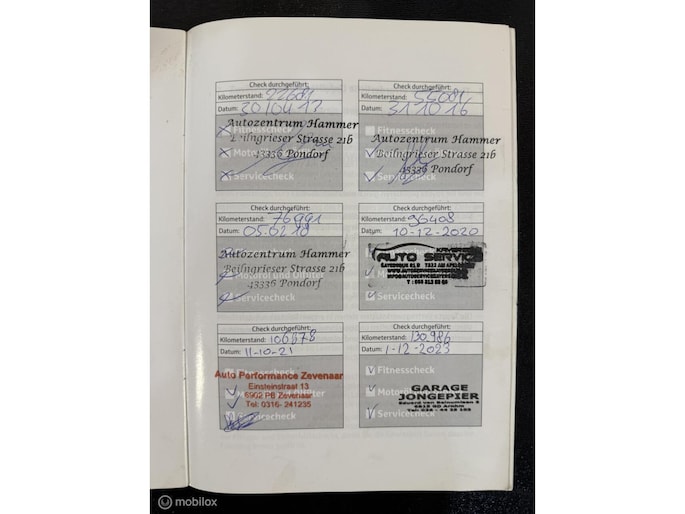 Check durchgeführt:
Kilometerstand:
Datum: 30/04 17
Autozentrum Hammer
Fitnesscheck
Beilngrieser Strasse 21b
43336 Pondorf
Servicecheck
Check durchgeführt:
Kilometerstand:
Datum: 31 10 16
Fitnesscheck
Autozentrum Hammer
Beilngrieser Strasse 21b
43336 Pondorf
Servicecheck
Check durchgeführt:
Kilometerstand: 76991
Datum: 05.02 18
Autozentrum Hammer
Beilngrieser Strasse 21b
43336 Pondorf
Servicecheck
Check durchgeführt:
Kilometerstand: 96408
Datum: 10-12-2020
AUTO SERVICE
Servicecheck
Check durchgeführt:
Kilometerstand: 106678
Datum: 11-10-21
Auto Performance Zevenaar
Einsteinstraat 13
6902 PB Zevenaar
Tel: 0316- 241235
Check durchgeführt:
Kilometerstand: 130.986
Datum: 1-12-2023
Fitnesscheck
GARAGE
JONGEPIER
Servicecheck
mobilox